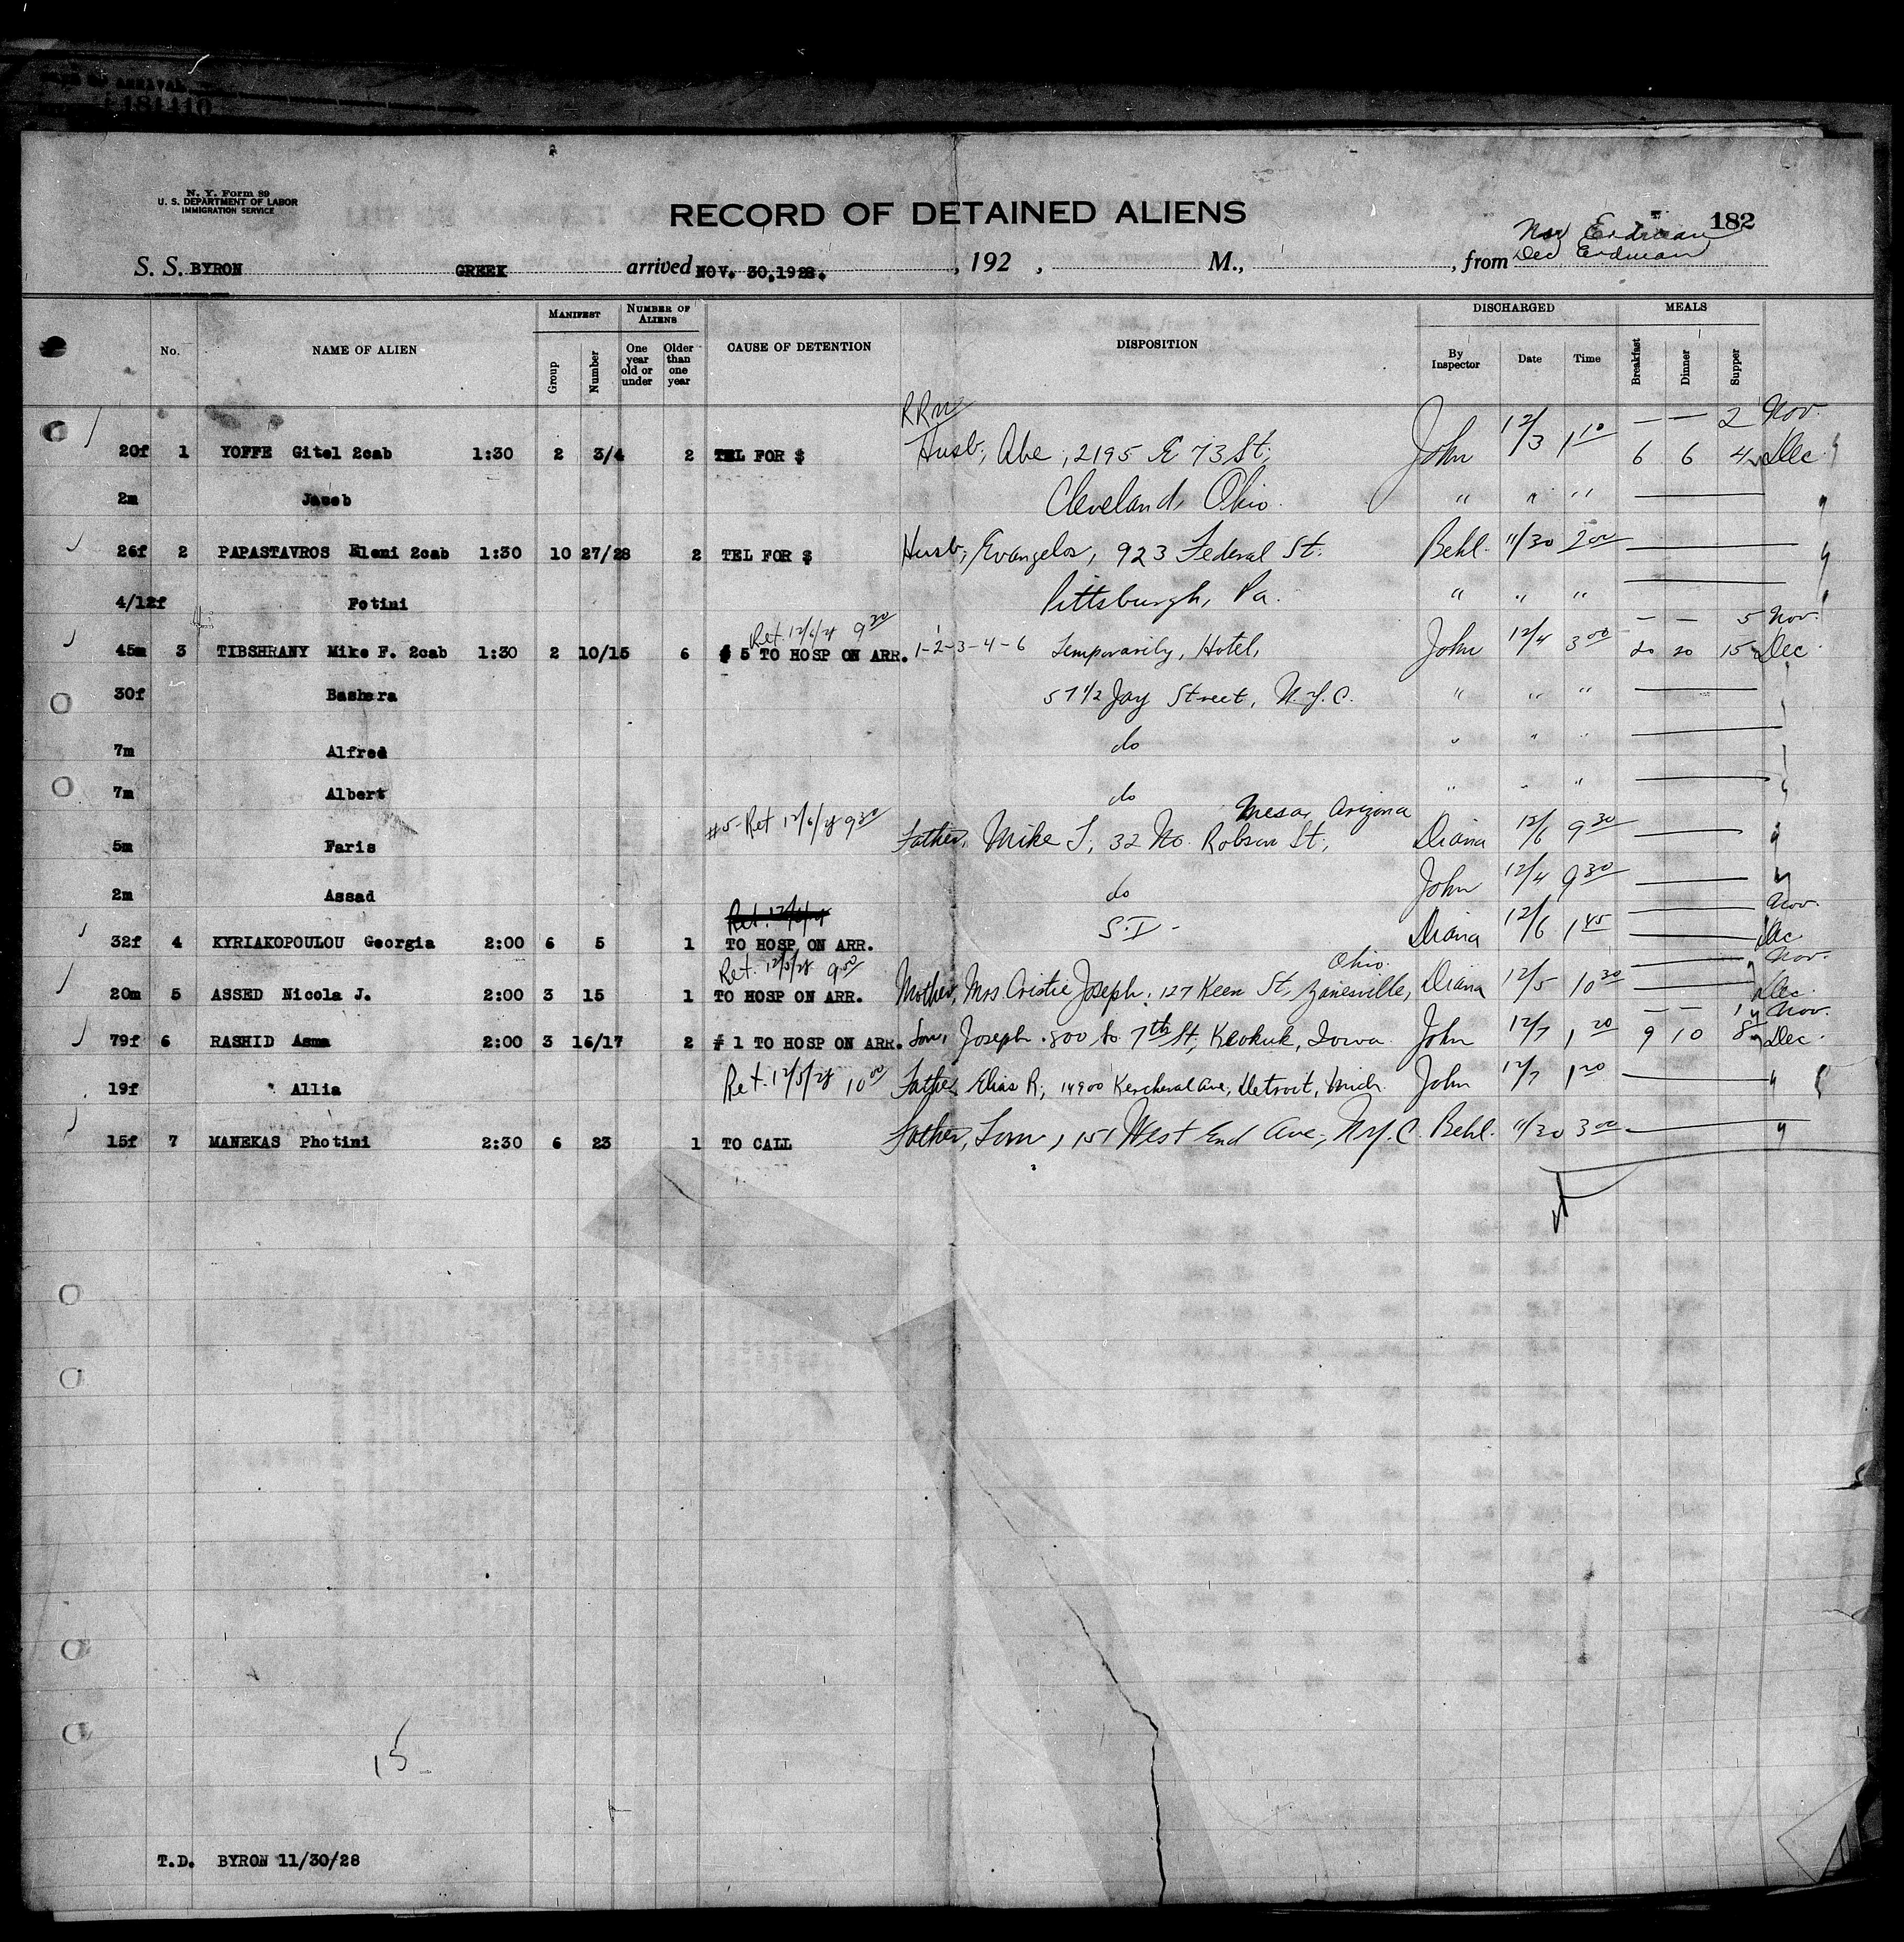 N. Y. Form 89
U. S. DEPARTMENT OF LABOR
IMMIGRATION SERVICE
RECORD OF DETAINED ALIENS
182
Nov Erdman
S. S. BYRON GREEK arrived NOV. 30, 1928. , 192 , M., , from Dec Erdman
No. NAME OF ALIEN MANIFEST Group Number NUMBER OF ALIENS One year old or under Older than one year CAUSE OF DETENTION DISPOSITION DISCHARGED By Inspector Date Time MEALS Breakfast Dinner Supper
— — 2 Nov.
20f 1 YOFFE Gitel 2cab 1:30 2 3/4 2 TEL FOR $ Husb, Abe, 2195 E 73 St, John 12/3 1 10 6 6 4 Dec
2m Jacob Cleveland, Ohio. " " "
26f 2 PAPASTAVROS Eleni 2cab 1:30 10 27/28 2 TEL FOR $ Husb, Evangelos, 923 Federal St. Behl. 11/30 2 00
4/12f Fotini Pittsburgh, Pa. " " "
Ret. 12/6/28 9 30 — — 5 Nov.
45m 3 TIBSHRANY Mike F. 2cab 1:30 2 10/15 6 # 5 TO HOSP ON ARR. 1-2-3-4-6 Temporarily, Hotel, John 12/4 3 00 20 20 15 Dec
30f Bashara 57 1/2 Jay Street, N.Y.C. " " "
7m Alfred do " " "
7m Albert do " " "
#5-Ret 12/6/28 9 30 Mesa, Arizona
5m Faris Father, Mike F, 32 No. Robson St, Diana 12/6 9 30
2m Assad do John 12/4 9 30
Ret. Nov.
32f 4 KYRIAKOPOULOU Georgia 2:00 6 5 1 TO HOSP ON ARR. S.I- Diana 12/6 1 45 Dec
Ret. 12/5/28 9 00 Ohio. Nov.
20m 5 ASSED Nicola J. 2:00 3 15 1 TO HOSP ON ARR. Mother, Mrs Cristie Joseph, 127 Keen St, Zanesville, Diana 12/5 10 30 Dec.
— — 1 Nov.
79f 6 RASHID Asma 2:00 3 16/17 2 # 1 TO HOSP ON ARR. Son, Joseph, 800 So 7th St, Keokuk, Iowa. John 12/7 1 20 9 10 8 Dec.
19f Allia Ret. 12/5/28 10 00 Father Elias R, 14900 Kercheval Ave, Detroit, Mich. John 12/7 1 20
15f 7 MANEKAS Photini 2:30 6 23 1 TO CALL Father, Tom, 151 West End Ave, N.Y.C. Behl. 11/30 3 00
15
T.D. BYRON 11/30/28